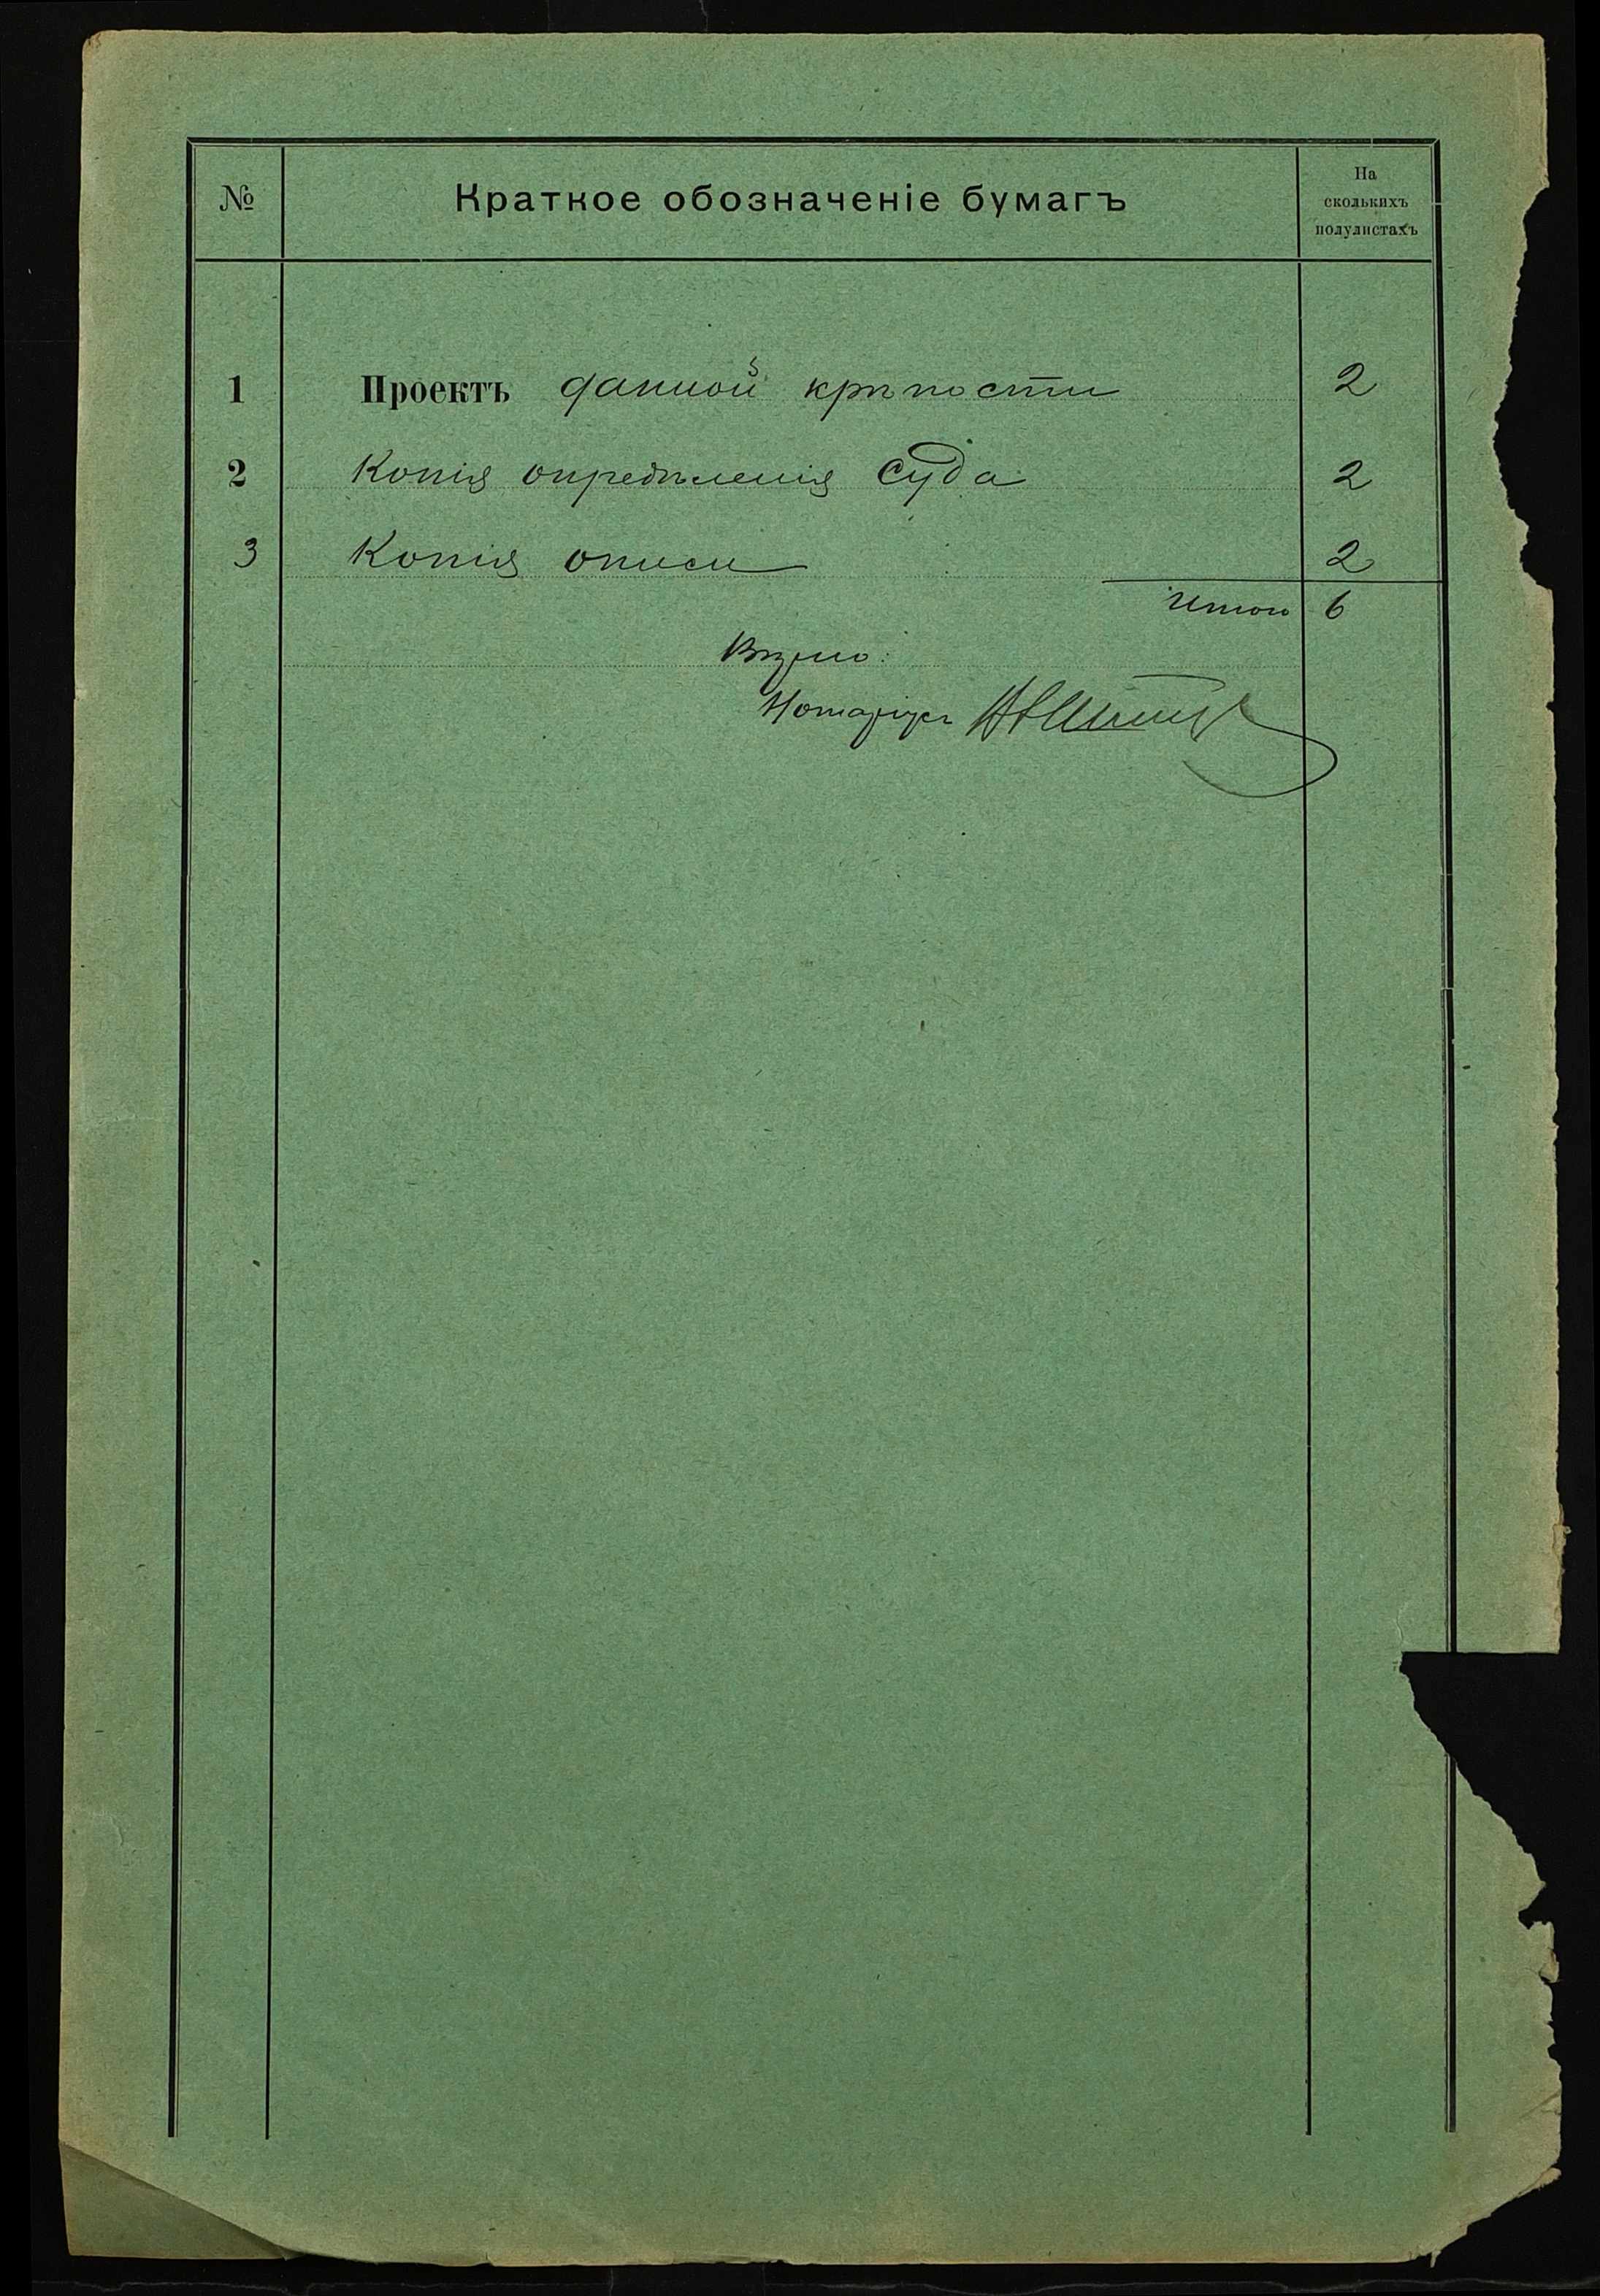 № Краткое обозначеніе бумагъ На
сколькихъ
полулистахъ
1 Проектъ данной крѣпости 2
2 Копія опредѣленія Суда 2
3 Копія описи 2
Итого 6
Вѣрно:
Нотаріусъ